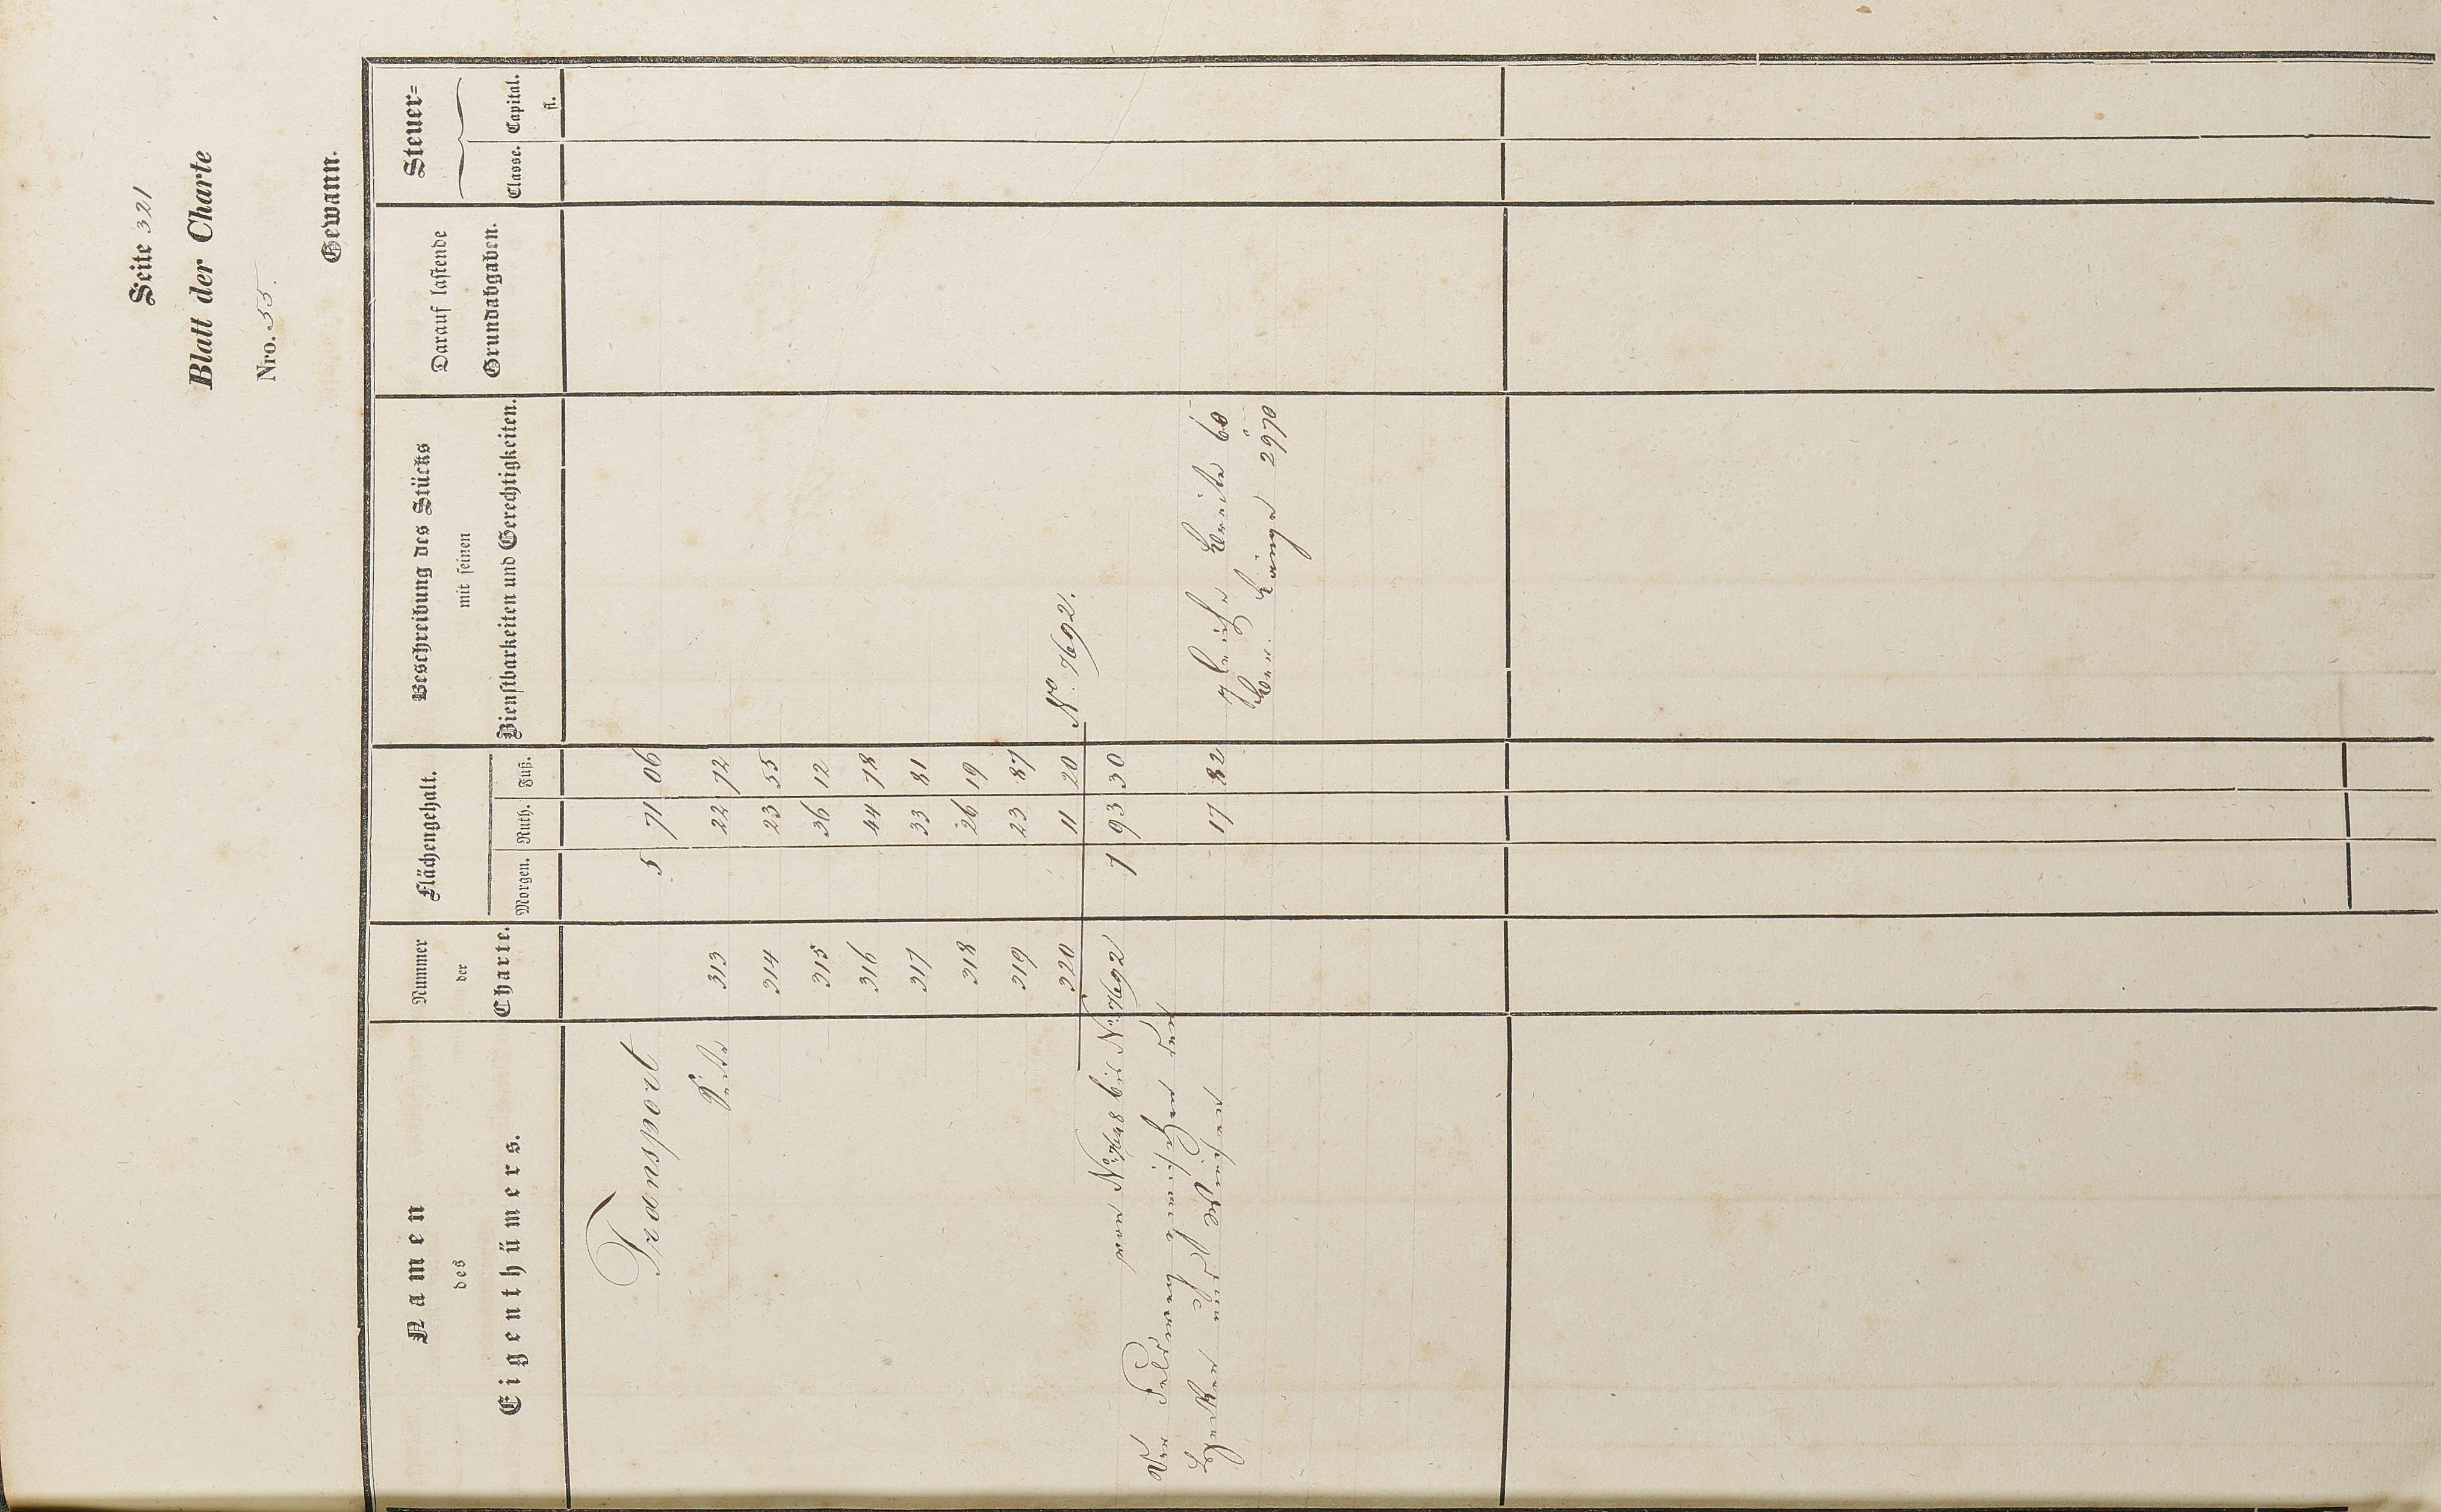 Seite 321
Blatt der Charte
Nro. 55.
Gewann.
Namen
des
Eigenthümers.
Nummer
der
Charte.
Flächengehalt.
Morgen. Ruth. Fuß.
Beschreibung des Stücks
mit seinen
Dienstbarkeiten und Gerechtigkeiten.
Darauf lastende
Grundabgaben.
Steuer=
Classe. Capital.
fl.
Transport 5 71 06
Seite 313 22 72
314 23 55
315 36 12
316 44 78
317 33 81
318 26 19
319 23 87
320 11 20 No. 7692.
von No. bis No. 7692 7 93 30
Der Feldweg zwischen den
und Wiesen 17 82 gleiche Breite 60
Länge 2970